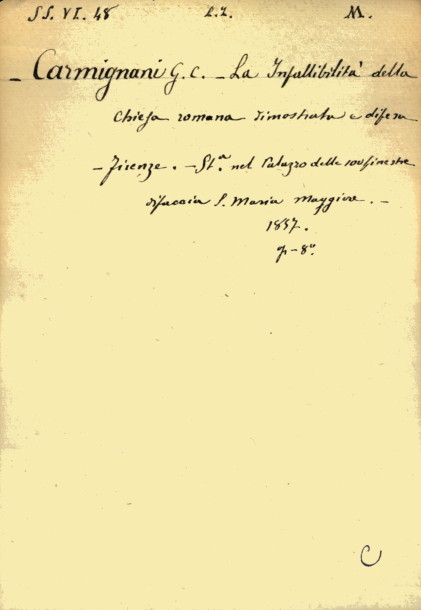 SS. VI. 48 L.I. M.
– Carmignani G. C. – La Infallibilità della
Chiesa romana dimostrata e difesa
– Firenze. – St.ª nel Palazzo delle cento finestre
difaccia S. Maria Maggiore. –
1837.
p–8º.
C